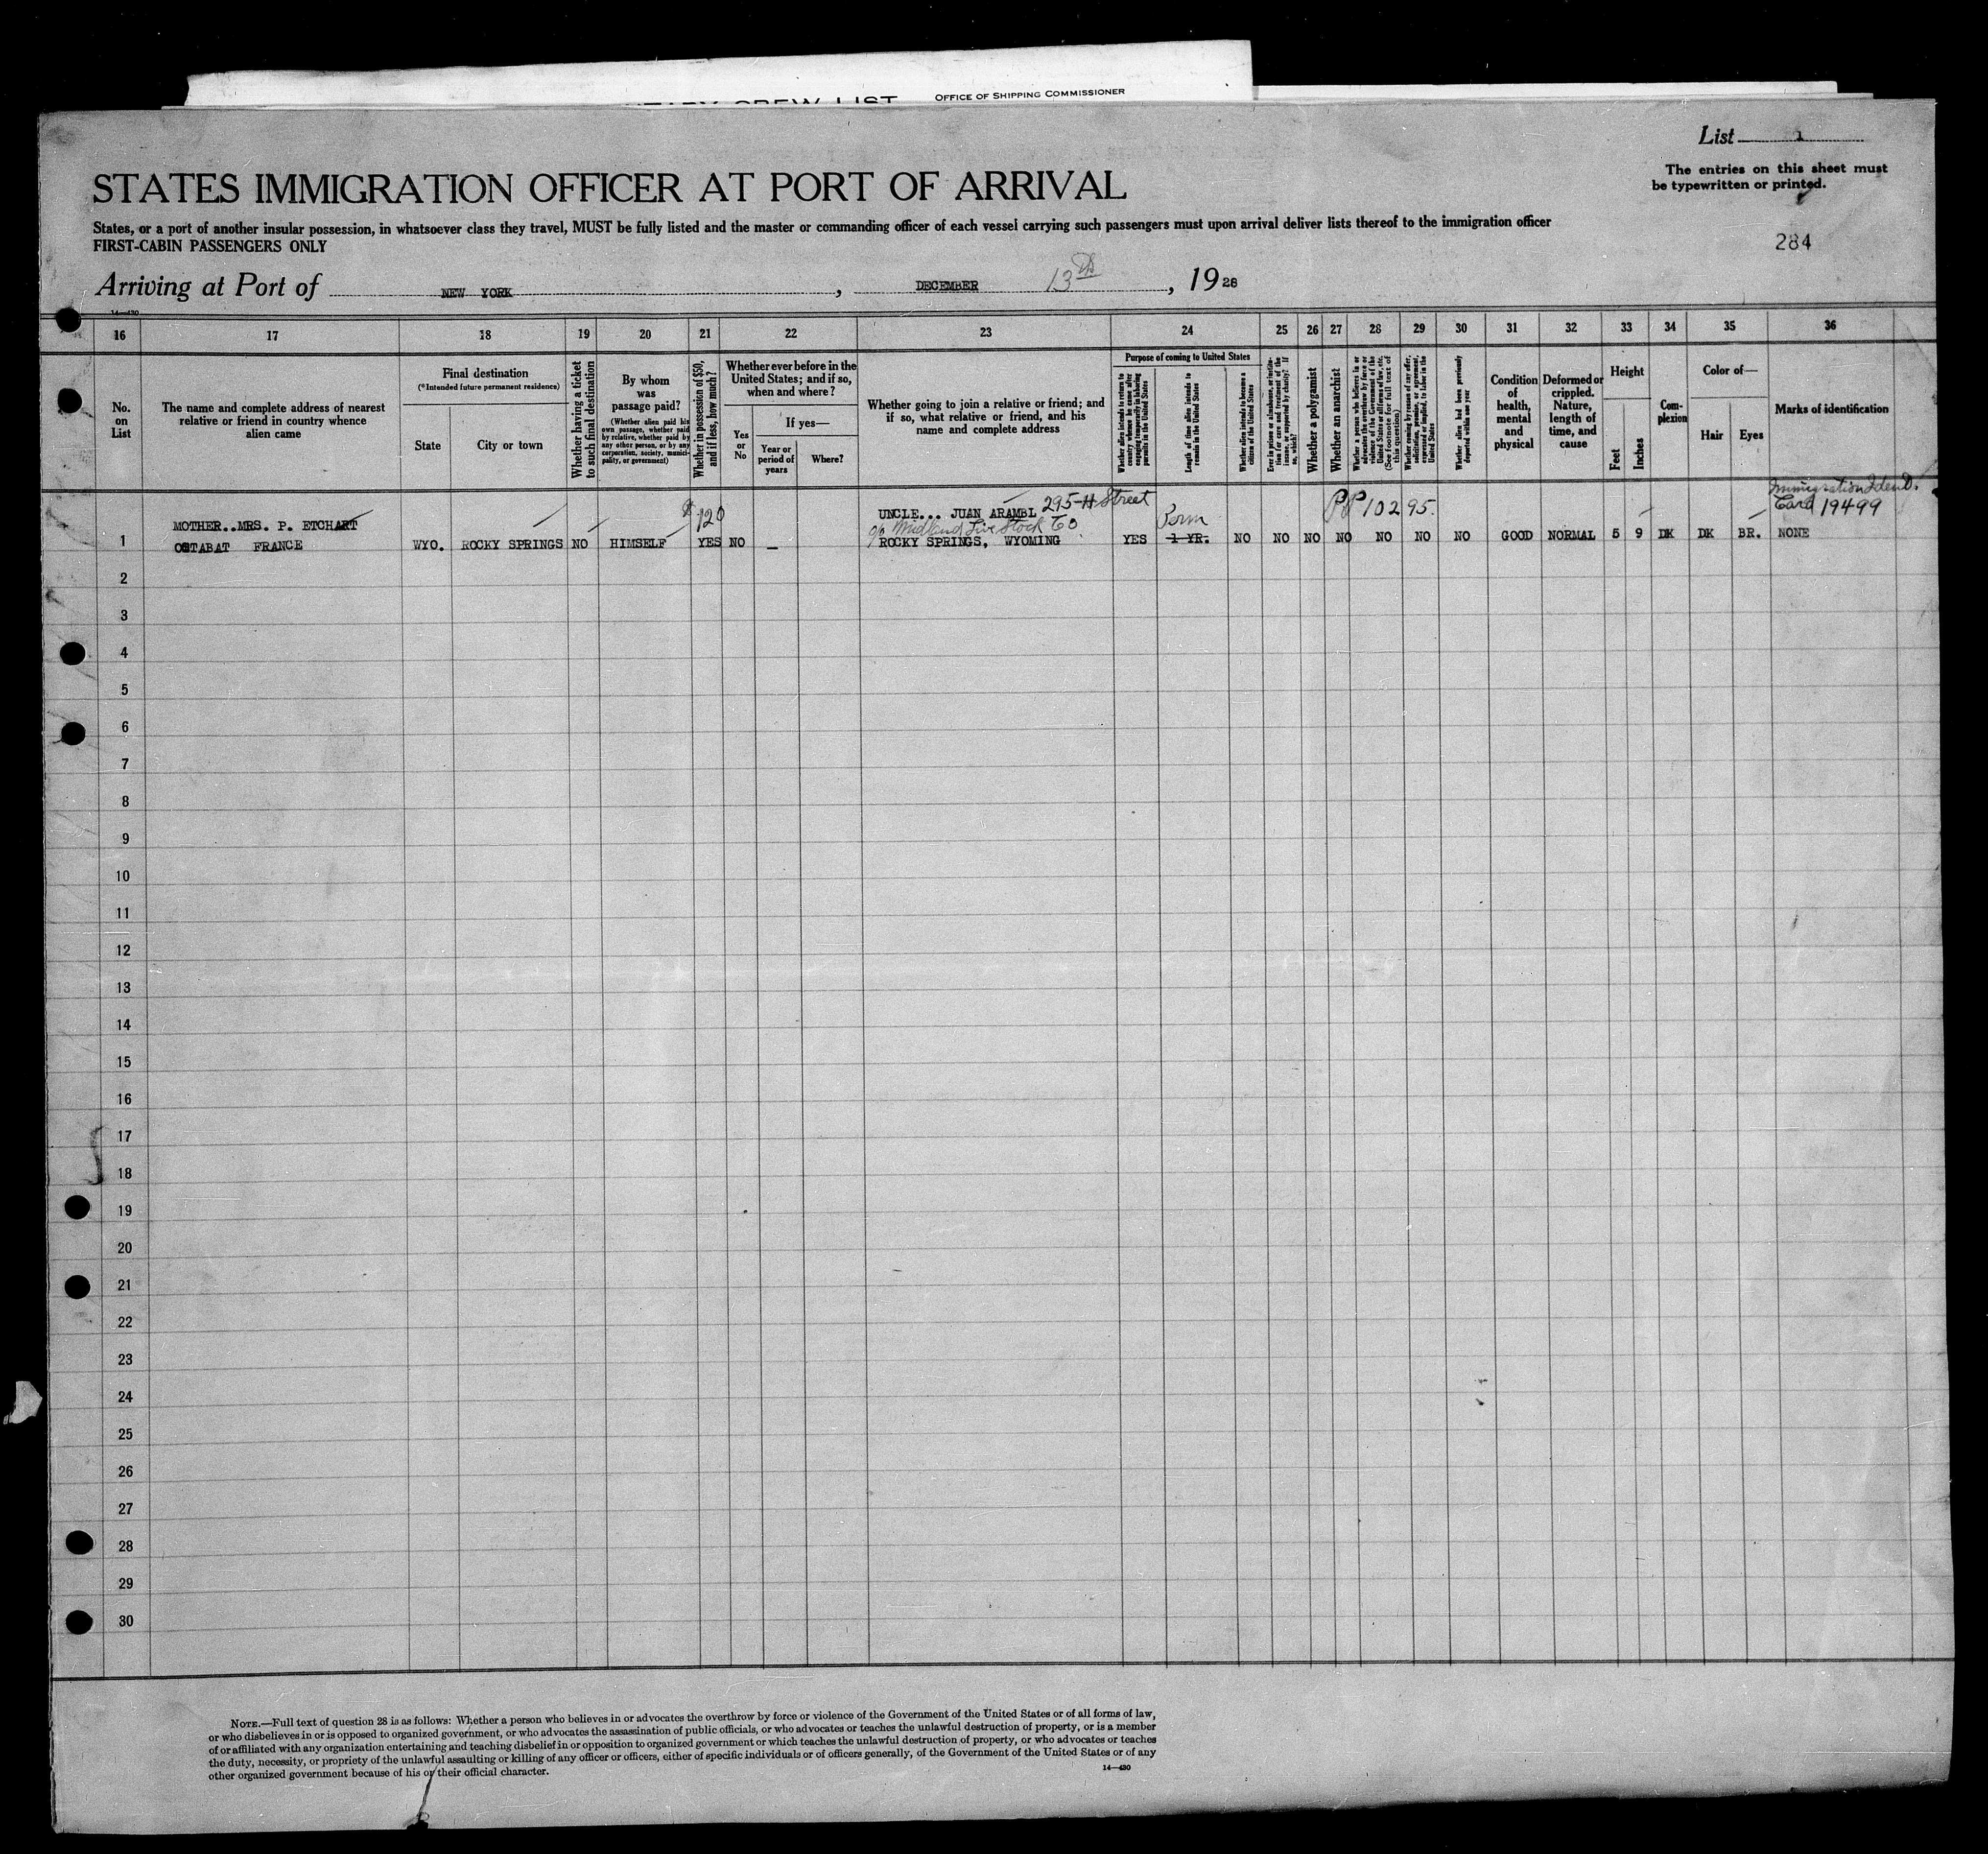 TARY CREW LIST OFFICE OF SHIPPING COMMISSIONER
List 1
The entries on this sheet must
be typewritten or printed.
STATES IMMIGRATION OFFICER AT PORT OF ARRIVAL
States, or a port of another insular possession, in whatsoever class they travel, MUST be fully listed and the master or commanding officer of each vessel carrying such passengers must upon arrival deliver lists thereof to the immigration officer
FIRST-CABIN PASSENGERS ONLY
284
Arriving at Port of NEW YORK, DECEMBER 13th, 1928
14—430
16 17 18 19 20 21 22 23 24 25 26 27 28 29 30 31 32 33 34 35 36
No.
on
List
The name and complete address of nearest
relative or friend in country whence
alien came
Final destination
(*Intended future permanent residence)
State
City or town
Whether having a ticket
to such final destination
By whom
was
passage paid?
(Whether alien paid his
own passage, whether paid
by relative, whether paid by
any other person, or by any
corporation, society, munici-
pality, or government)
Whether in possession of $50,
and if less, how much?
Whether ever before in the
United States; and if so,
when and where?
Yes
or
No
If yes—
Year or
period of
years
Where?
Whether going to join a relative or friend; and
if so, what relative or friend, and his
name and complete address
Purpose of coming to United States
Whether alien intends to return to
country whence he came after
engaging temporarily in laboring
pursuits in the United States
Length of time alien intends to
remain in the United States
Whether alien intends to become a
citizen of the United States
Ever in prison or almshouse, or institu-
tion for care and treatment of the
insane, or supported by charity? If
so, which?
Whether a polygamist
Whether an anarchist
Whether a person who believes in or
advocates the overthrow by force or
violence of the Government of the
United States or all forms of law, etc.
(See footnote for full text of
this question)
Whether coming by reason of any offer,
solicitation, promise, or agreement,
expressed or implied, to labor in the
United States
Whether alien had been previously
deported within one year
Condition
of
health,
mental
and
physical
Deformed or
crippled.
Nature,
length of
time, and
cause
Height
Feet
Inches
Com-
plexion
Color of—
Hair
Eyes
Marks of identification
MOTHER..MRS. P. ETCHART $120 UNCLE... JUAN ARAMBL 295-H Street Perm PP 10295. Immigration Ident.
Card 19499
c/o Midland Live Stock Co.
1 OSTABAT FRANCE WYO. ROCKY SPRINGS NO HIMSELF YES NO — ROCKY SPRINGS, WYOMING YES 1 YR. NO NO NO NO NO NO NO GOOD NORMAL 5 9 DK DK BR. NONE
2
3
4
5
6
7
8
9
10
11
12
13
14
15
16
17
18
19
20
21
22
23
24
25
26
27
28
29
30
NOTE.—Full text of question 28 is as follows: Whether a person who believes in or advocates the overthrow by force or violence of the Government of the United States or of all forms of law,
or who disbelieves in or is opposed to organized government, or who advocates the assassination of public officials, or who advocates or teaches the unlawful destruction of property, or is a member
of or affiliated with any organization entertaining and teaching disbelief in or opposition to organized government or which teaches the unlawful destruction of property, or who advocates or teaches
the duty, necessity, or propriety of the unlawful assaulting or killing of any officer or officers, either of specific individuals or of officers generally, of the Government of the United States or of any
other organized government because of his or their official character.
14—430